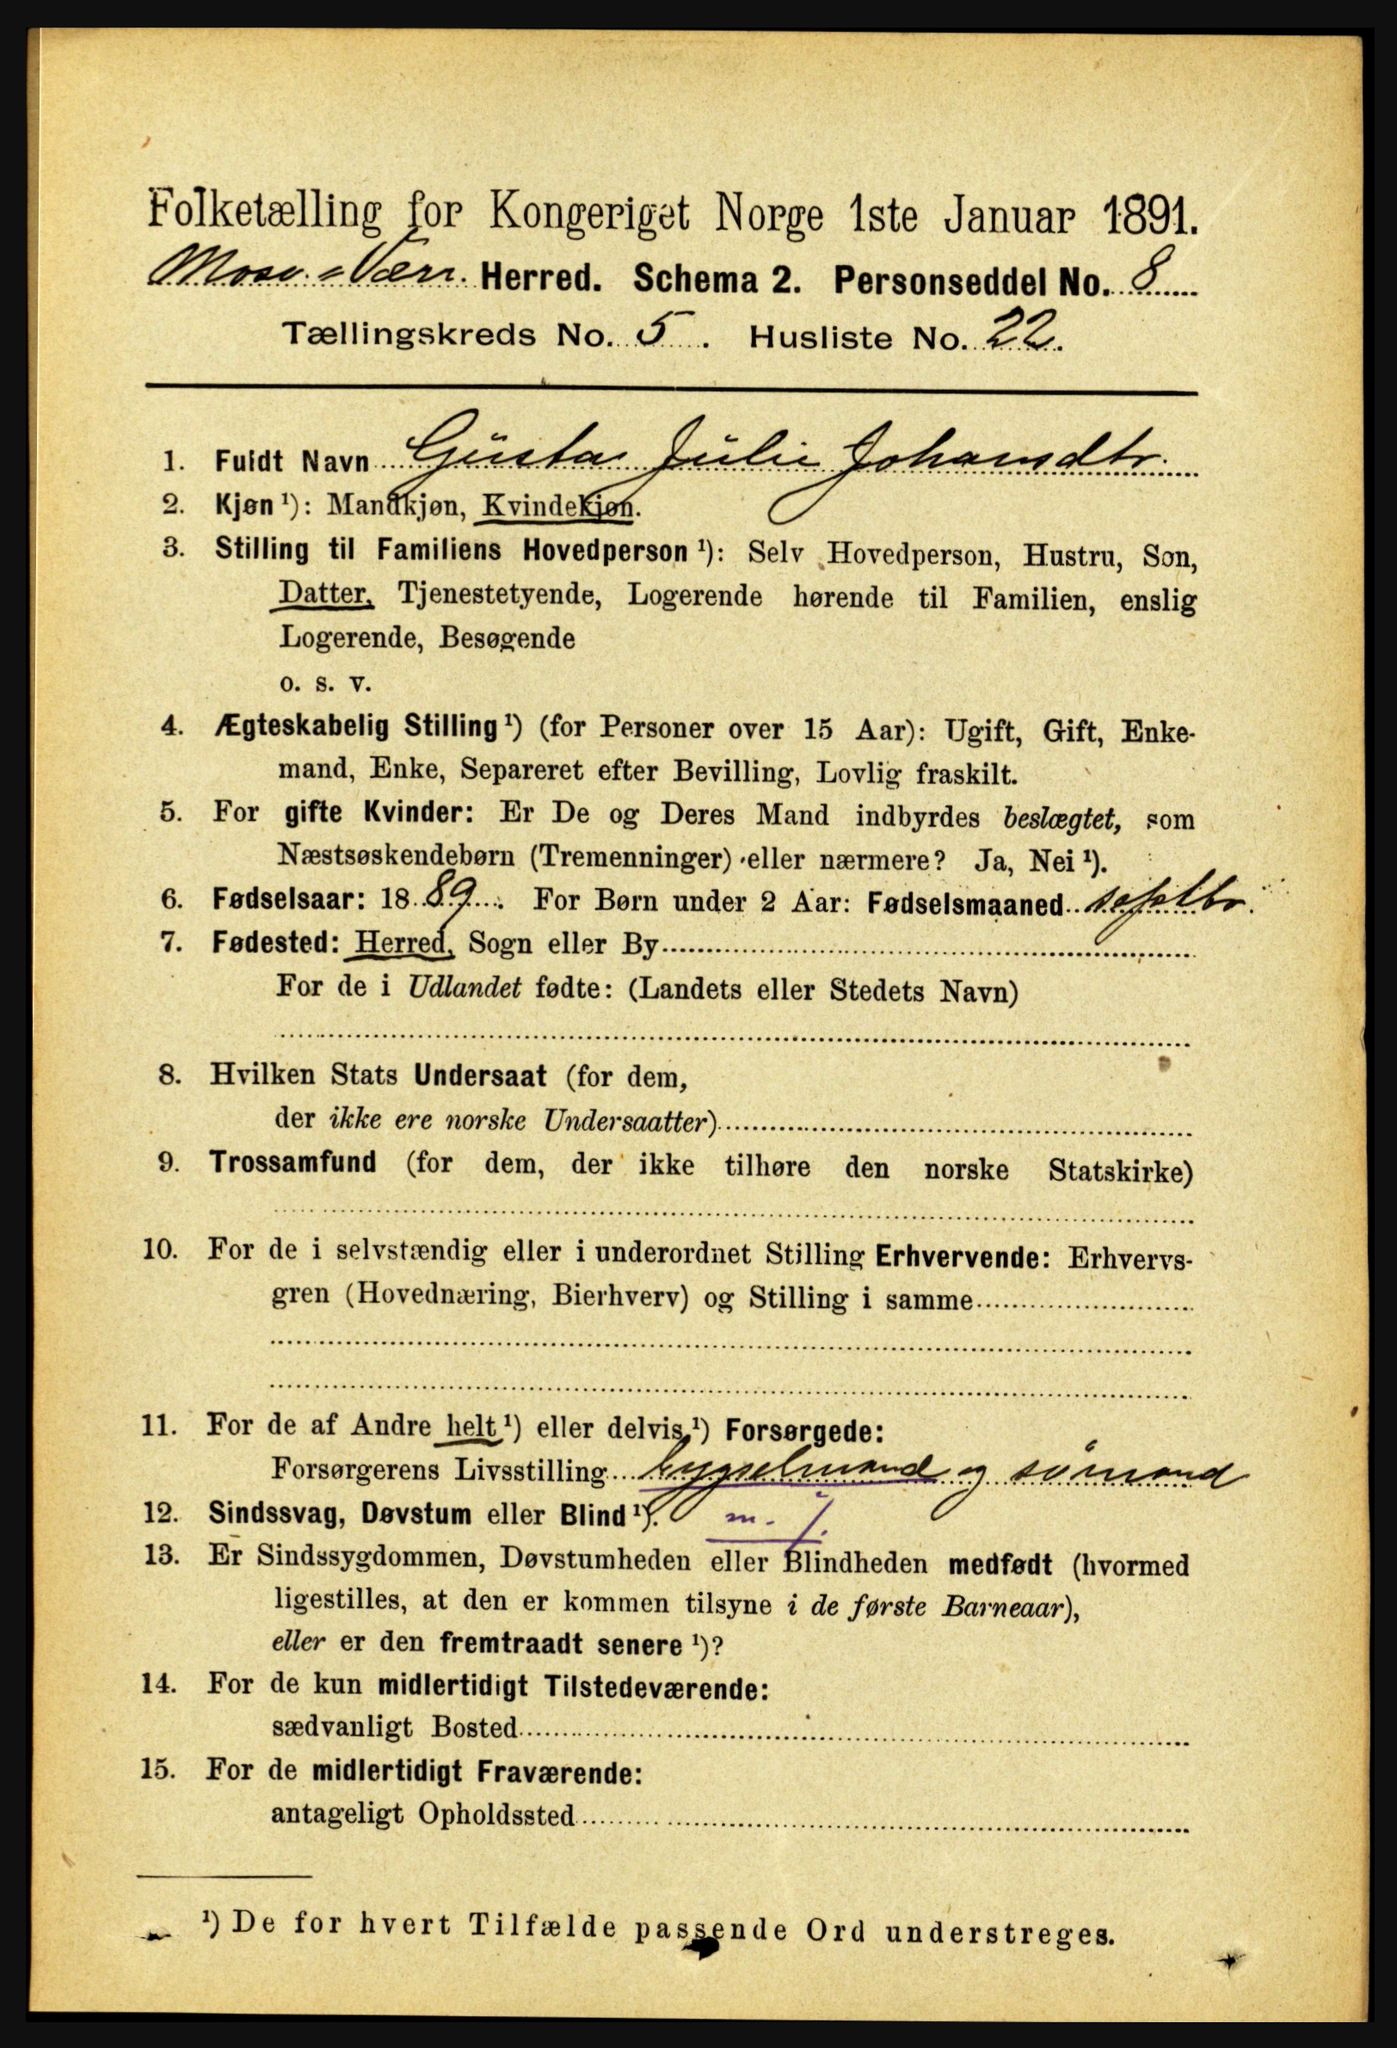 Folketælling for Kongeriget Norge 1ste Januar 1891.
Mosv. = Værr. Herred. Schema 2. Personseddel No. 8
Tællingskreds No. 5. Husliste No. 22.
1. Fuldt Navn Gusta Julie Johansdtr.
2. Kjøn ¹): Mandkjøn, Kvindekjøn.
3. Stilling til Familiens Hovedperson ¹): Selv Hovedperson, Hustru, Søn,
Datter, Tjenestetyende, Logerende hørende til Familien, enslig
Logerende, Besøgende
o. s. v.
4. Ægteskabelig Stilling ¹) (for Personer over 15 Aar): Ugift, Gift, Enke-
mand, Enke, Separeret efter Bevilling, Lovlig fraskilt.
5. For gifte Kvinder: Er De og Deres Mand indbyrdes beslægtet, som
Næstsøskendebørn (Tremenninger) eller nærmere? Ja, Nei ¹).
6. Fødselsaar: 1889. For Børn under 2 Aar: Fødselsmaaned septbr.
7. Fødested: Herred, Sogn eller By
For de i Udlandet fødte: (Landets eller Stedets Navn)
8. Hvilken Stats Undersaat (for dem,
der ikke ere norske Undersaatter)
9. Trossamfund (for dem, der ikke tilhøre den norske Statskirke)
10. For de i selvstændig eller i underordnet Stilling Erhvervende: Erhvervs-
gren (Hovednæring, Bierhverv) og Stilling i samme
11. For de af Andre helt ¹) eller delvis ¹) Forsørgede:
Forsørgerens Livsstilling bygselmand og sömand
12. Sindssvag, Døvstum eller Blind ¹). m.
13. Er Sindssygdommen, Døvstumheden eller Blindheden medfødt (hvormed
ligestilles, at den er kommen tilsyne i de første Barneaar),
eller er den fremtraadt senere ¹)?
14. For de kun midlertidigt Tilstedeværende:
sædvanligt Bosted
15. For de midlertidigt Fraværende:
antageligt Opholdssted
¹) De for hvert Tilfælde passende Ord understreges.